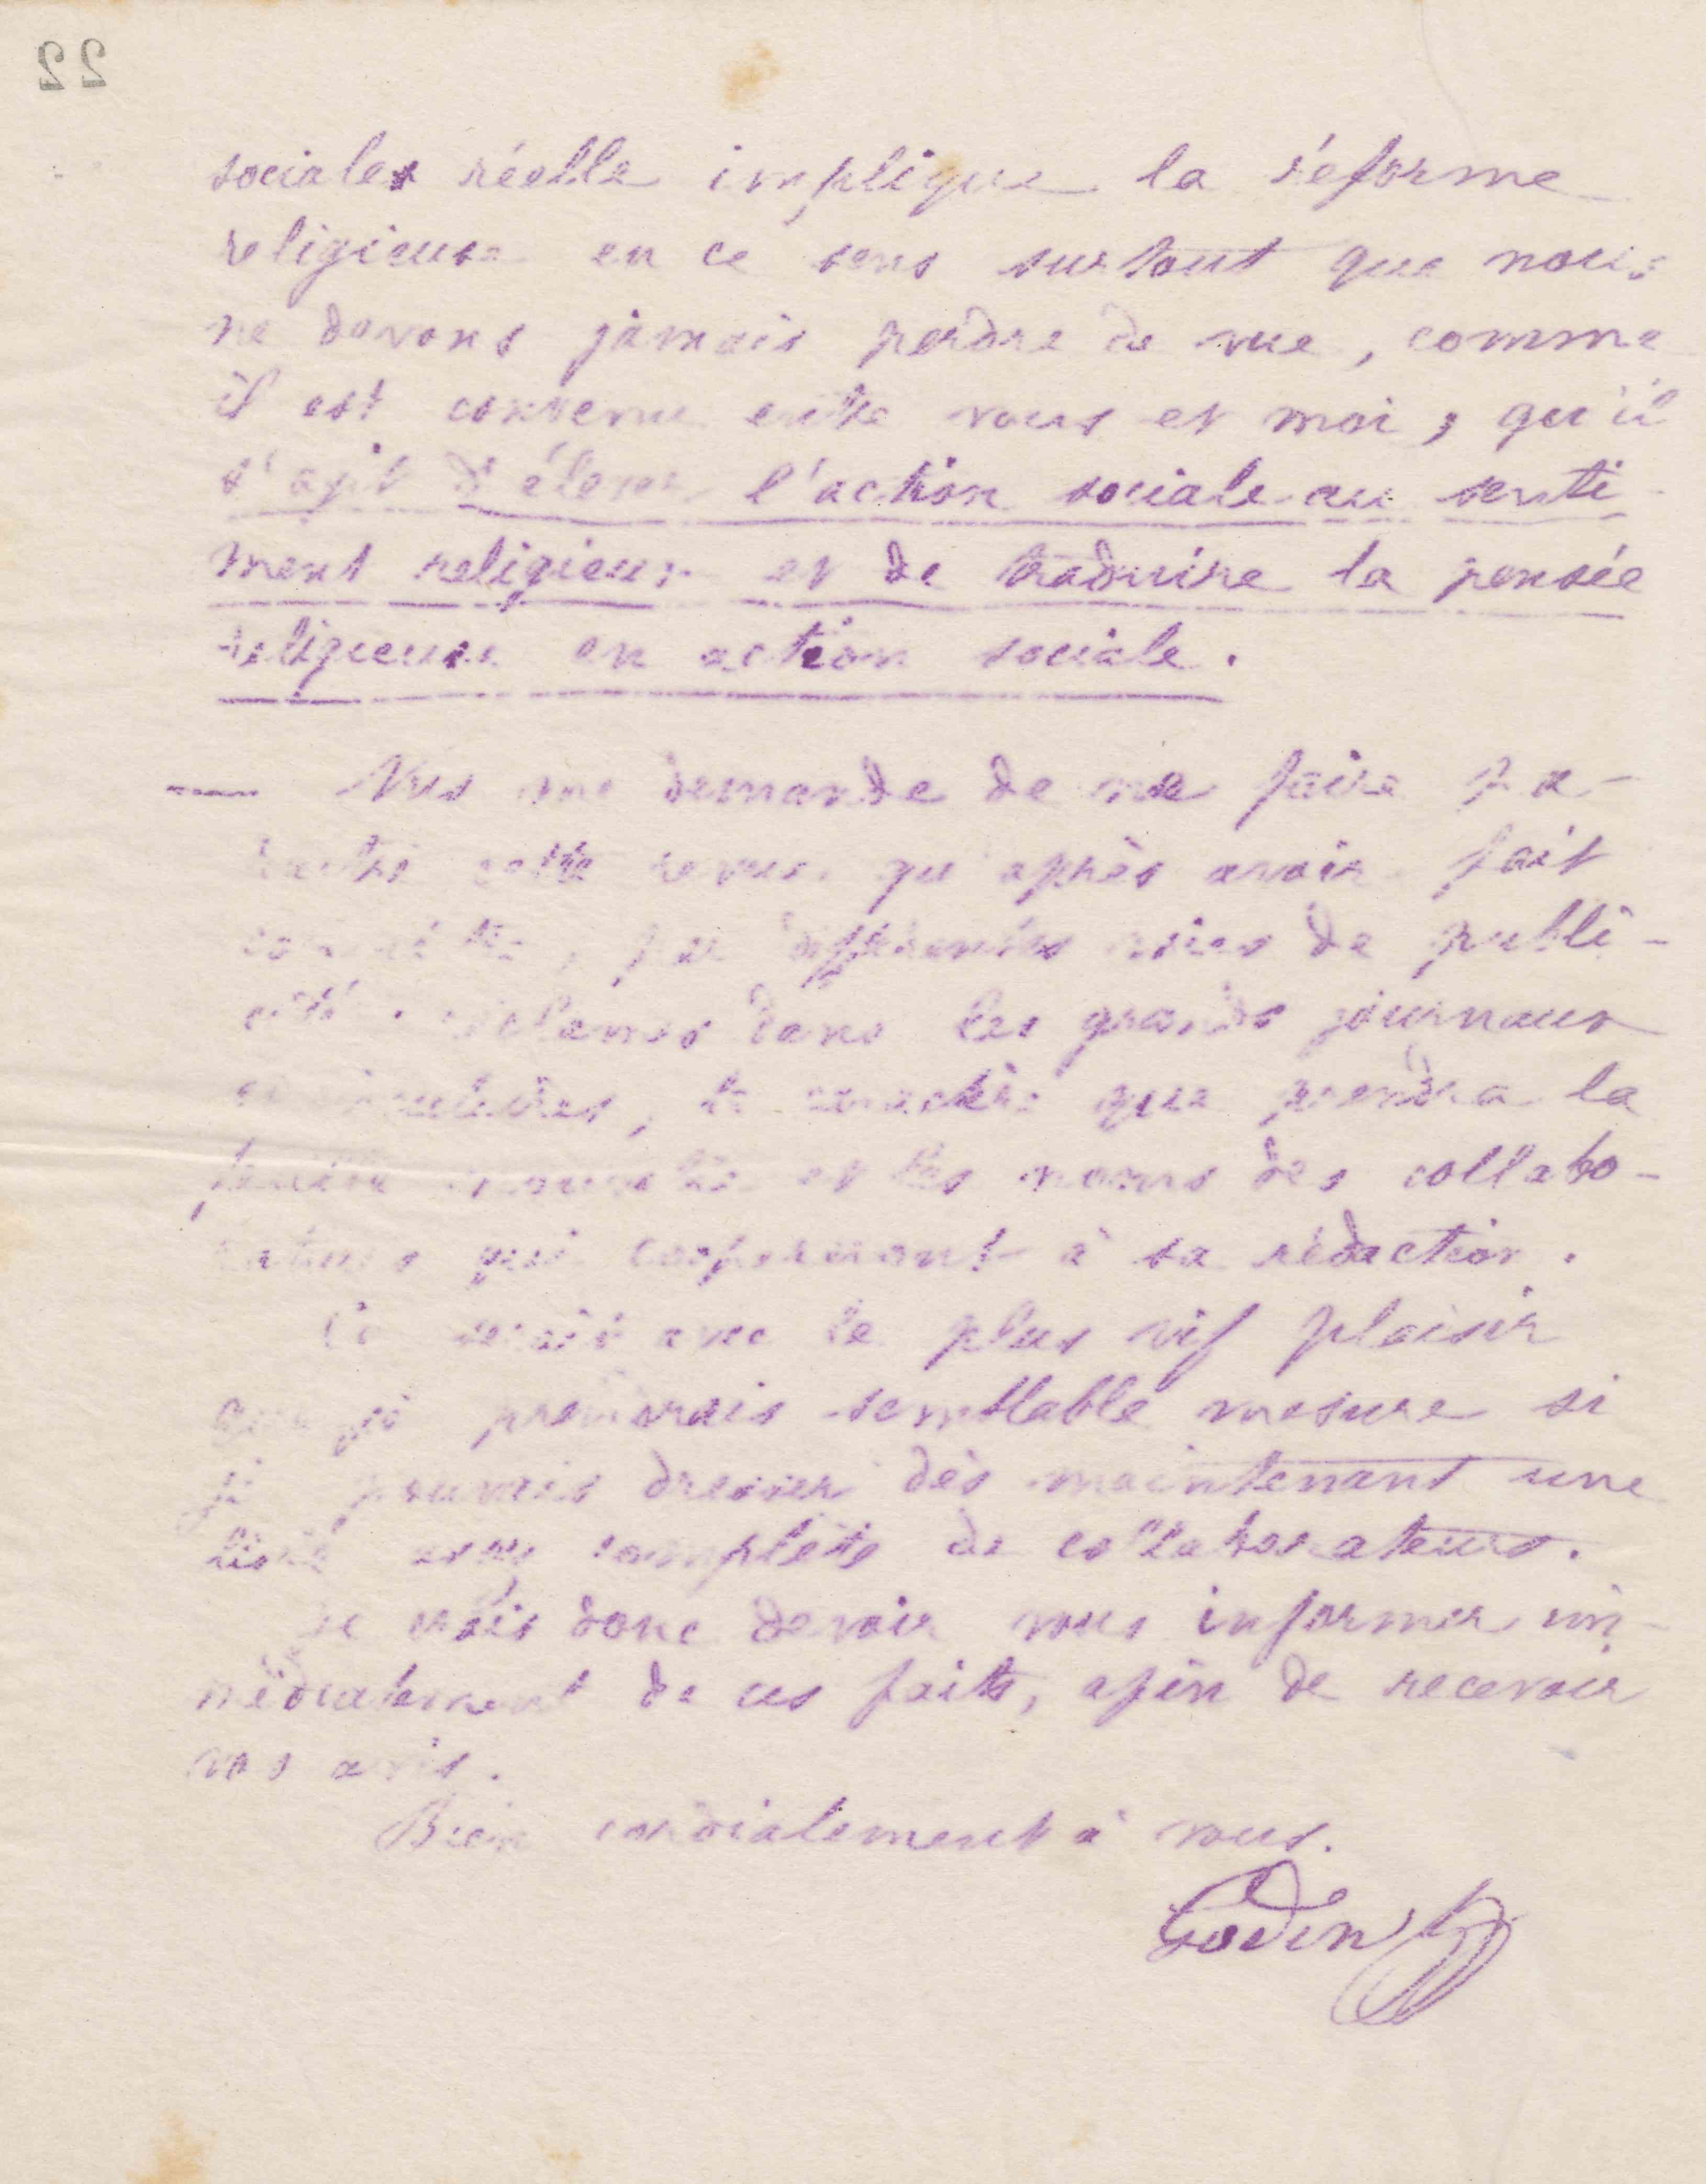 22
sociale réelle implique la réforme
religieuse en ce sens surtout que nous
ne devons jamais perdre de vue, comme
il est convenu entre vous et moi, qu'il
s'agit d'élever l'action sociale au senti-
ment religieux et de traduire la pensée
religieuse en action sociale.
— Vous me demande de ne faire pa-
raître cette revue qu'après avoir fait
connaître, par différentes voies de publi-
cité. réclames dans les grands journaux
circulaires, le caractère que prendra la
feuille nouvelle et les noms des collabo-
rateurs qui coopéreront à sa rédaction.
Ce serait avec le plus vif plaisir
que je prendrais semblable mesure si
je pouvais dresser dès maintenant une
liste assez complète de collaborateurs.
Je crois donc devoir vous informer im-
médiatement de ces faits, afin de recevoir
vos avis.
Bien cordialement à vous.
Godin